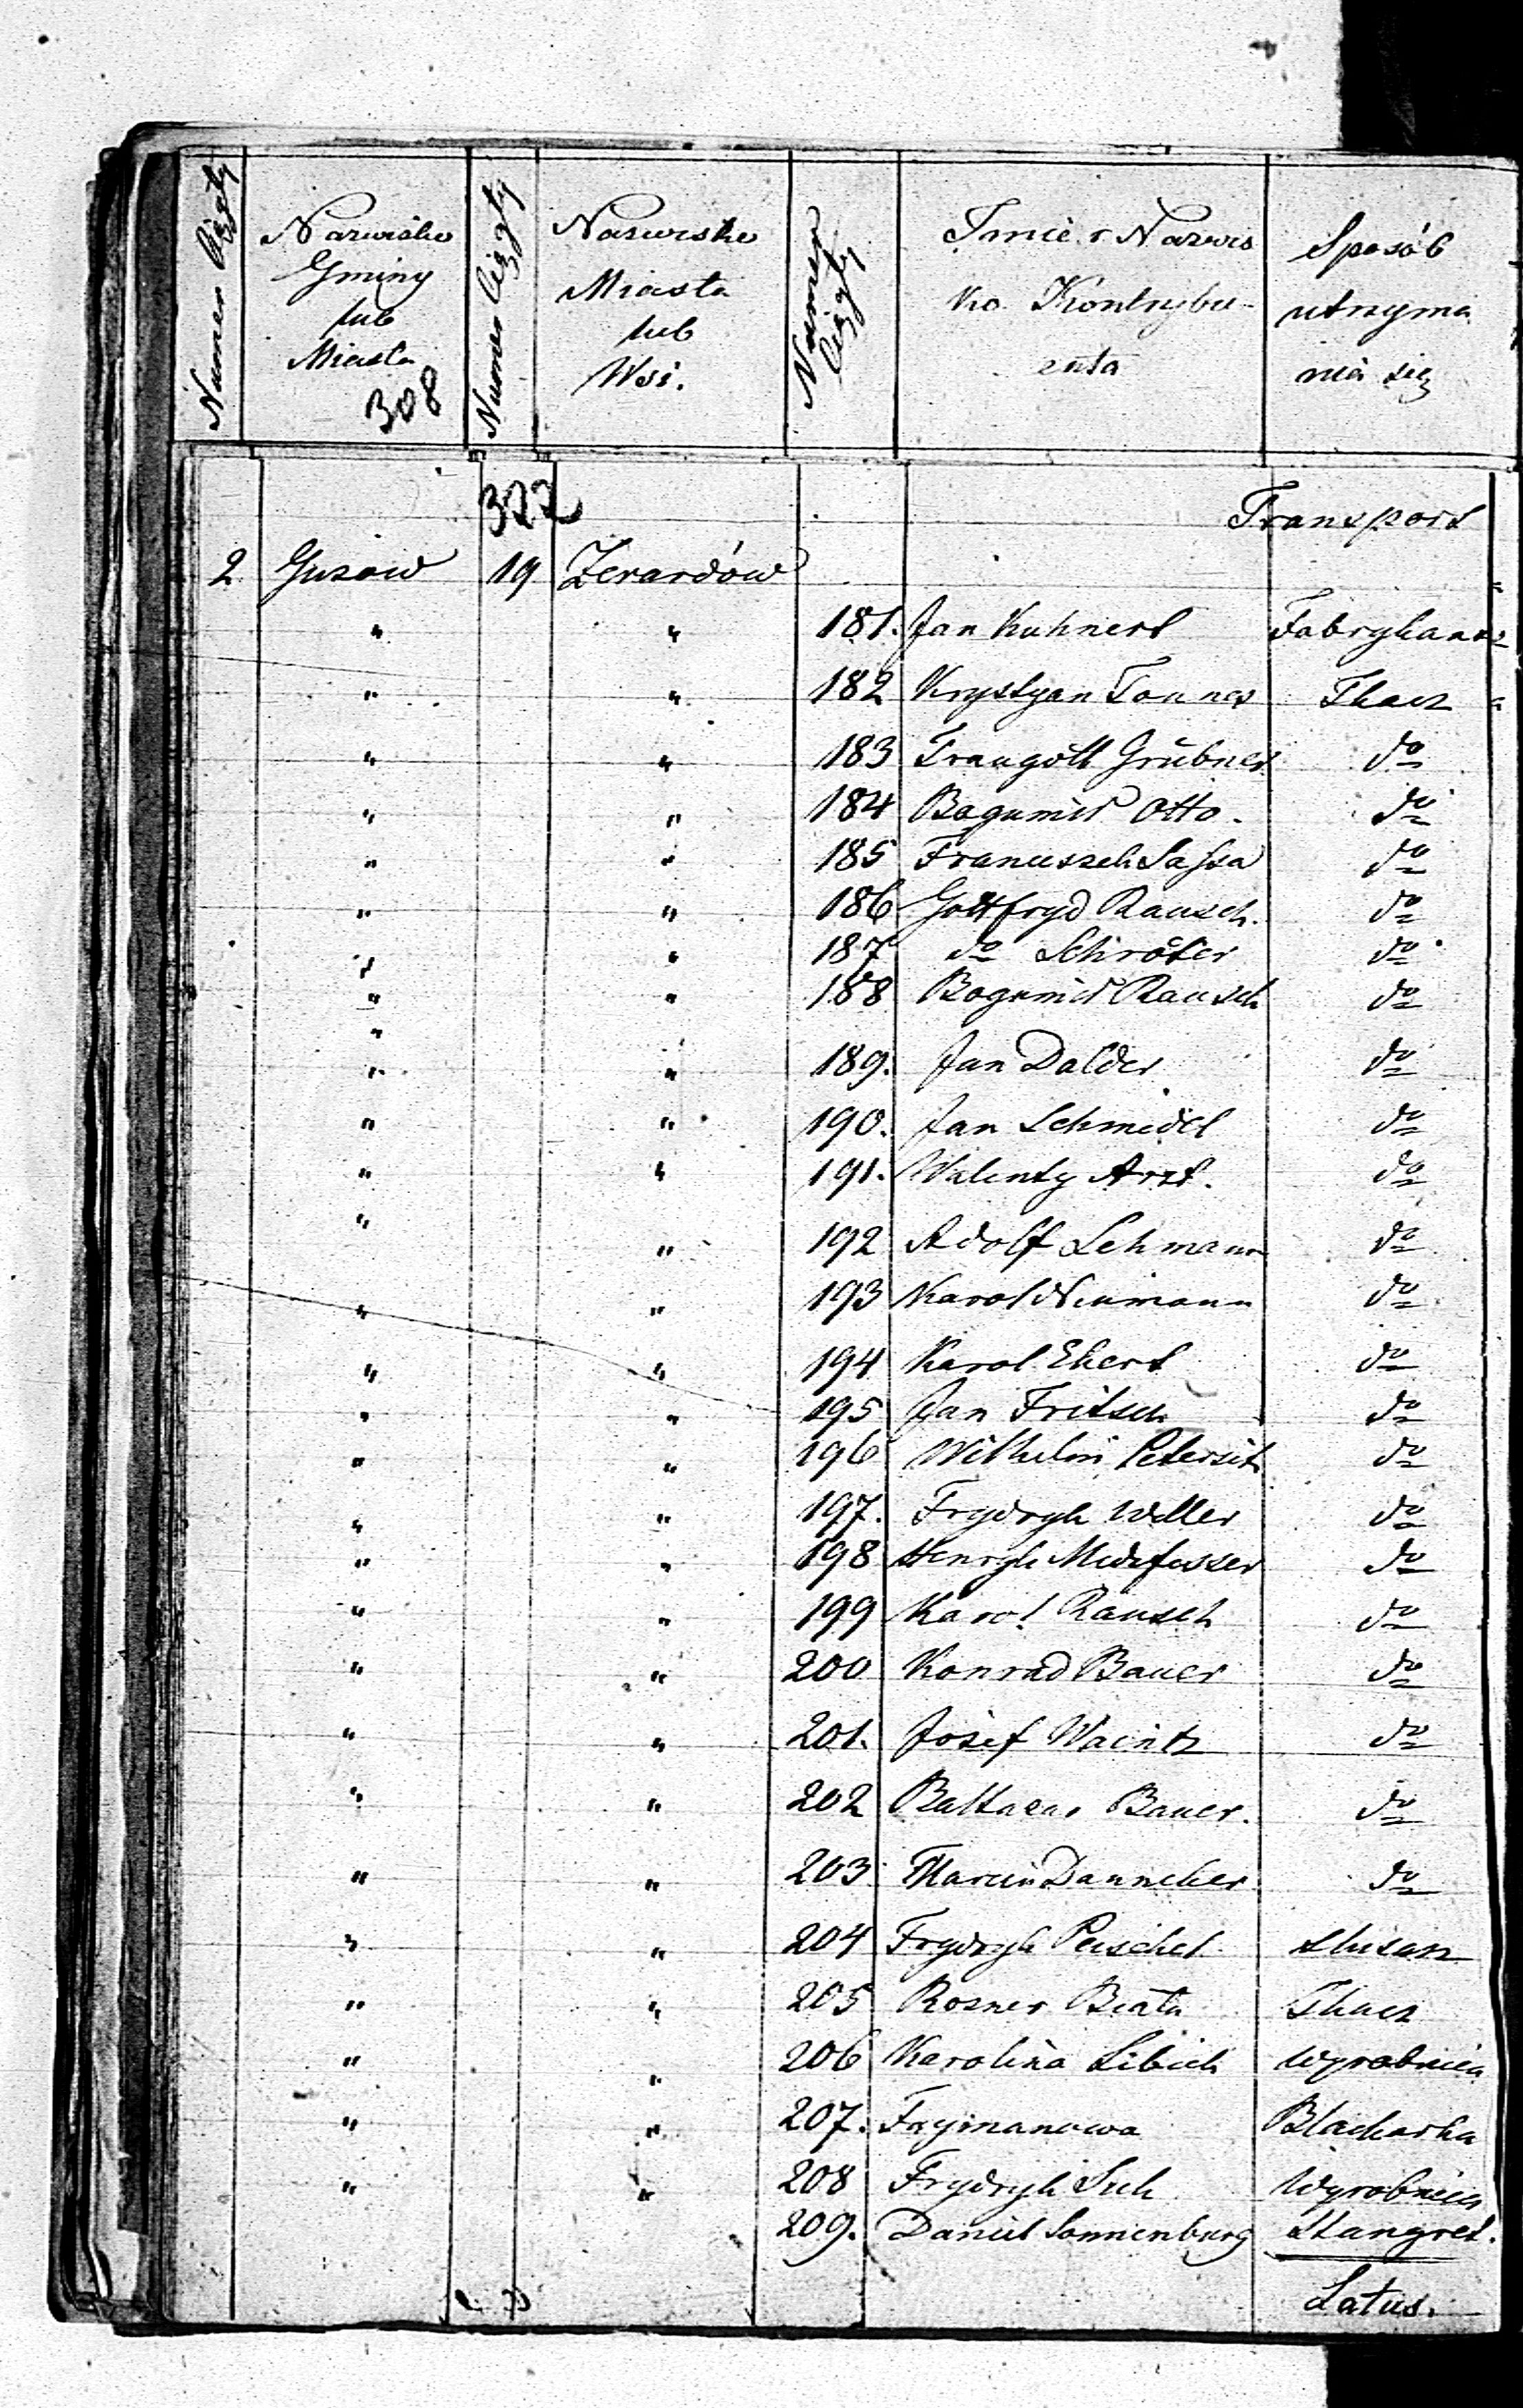 Numer bieżący
Nazwisko Gminy lub Miasta
308
Numer bieżący
Nazwisko Miasta lub Wsi.
Numer bieżący
Imie i Nazwisko Kontrybuenta
Sposób utrzymania się
322
Transport
2 Guzow 19 Żerardów
" " 181. Jan Kuhnert Fabrykant
" " 182 Krystyan Tonner Tkacz
" " 183 Traugott Grübner do
" " 184 Bogumił Otto. do
" " 185 Franciszek Sassa do
" " 186 Gottfryd Rausch. do
" " 187 do Schröter do
" " 188 Bogumił Rausch do
"
" " 189. Jan Dalder do
" " 190. Jan Schmidt do
" " 191. Walenty Arzt. do
" " 192 Adolf Lehmann do
" " 193 Karol Neumann do
" " 194 Karol Ekert do
" " 195 Jan Fritsch do
" " 196 Wilhelm do
" " 197. Frydryk Weller do
" " 198 Henryk do
" " 199 Karol Rausch do
" " 200 Konrad Bauer do
" " 201. Józef Waintz do
" " 202 Baltazar Bauer. do
" " 203 Marcin Danneker do
" " 204 Frydryk Peischel slusarz
" " 205 Rozner Beata Tkacz
" " 206 Karolina Libich wyrobnica
" " 207. Faymanowa Blacharka
" " 208 Fryderyk Suk Wyrobnik
" " 209. Daniel Sonnenburg Stangret.
Latus.